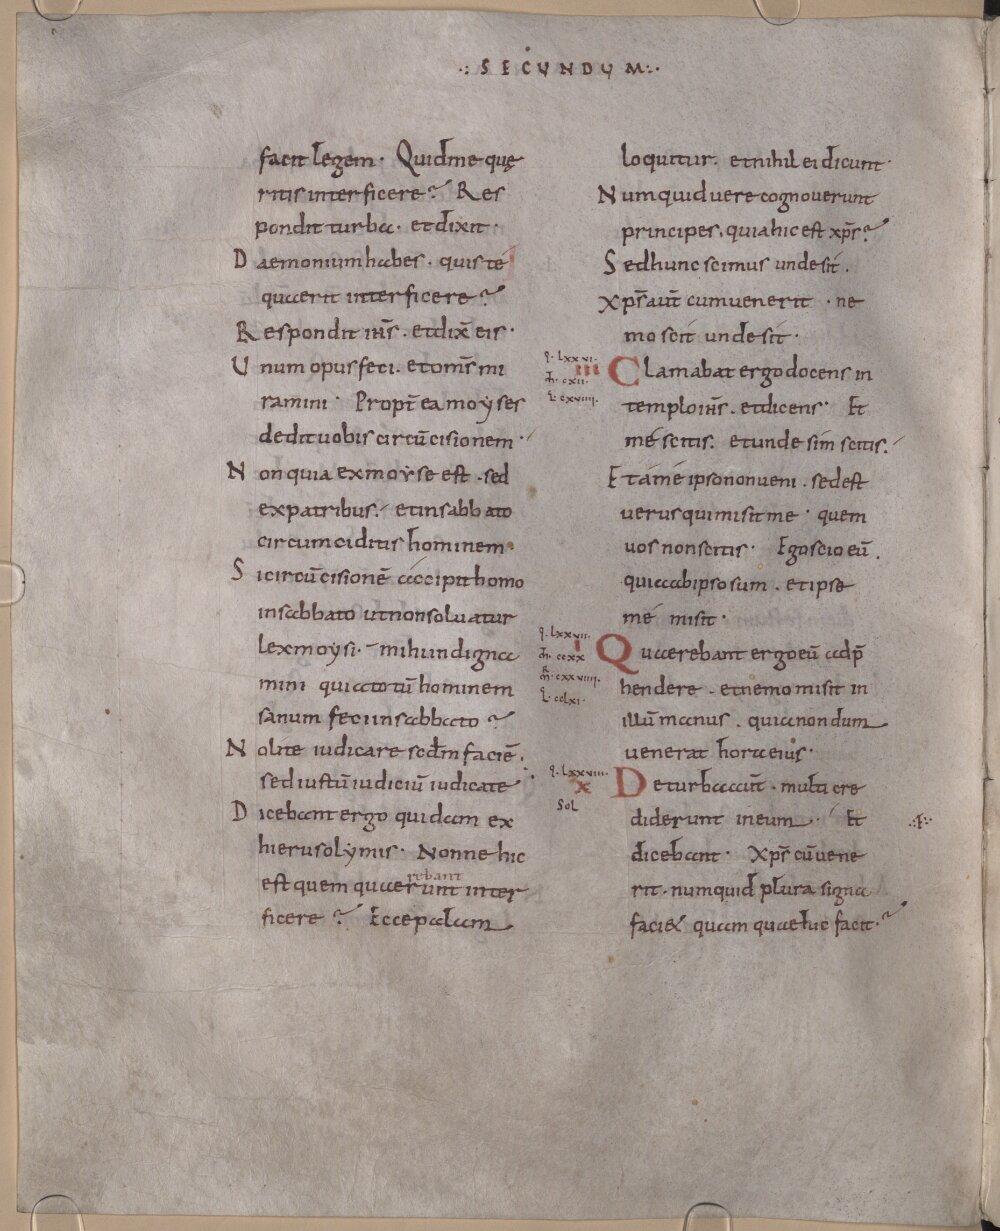 .: SECUNDUM :.
facit legem. Quidme quę
ritis interficere? Res
pondit turba. et dixit.
Daemonium habes. quis te
quaerit interficere?
Respondit ihs̄. et dix̄ eis.
Unum opus feci. et om̄s mi
ramini. Propt̄ea moyses
dedit uobis circū cisionem.
Non quia ex moyse est. sed
ex patribus. et in sabbato
circumciditis hominem.
Si circū cisionē accipit homo
in sabbato ut non soluatur
lex moysi. mihi indigna
mini quia totū hominem
sanum feci in sabbato?
Nolite iudicare scdm̄ faciē.
sed iustū iudiciū iudicate
Dicebant ergo quidam ex
hierusolymis. Nonne hic
rebant
est quem quaerunt inter
ficere? Ecce palam
loquitur. et nihil ei dicunt.
Numquid uere cognouerunt
principes. quia hic est xp̄s?
Sed hunc scimus unde sit.
xp̄s aut̄ cum uenerit. ne
mo scit unde sit.
Clamabat ergo docens in
templo ihs̄. et dicens. Et
me scitis. et unde sim scitis.
Et a me ipso non ueni. sed est
uerus qui misit me. quem
uos non scitis. Ego scio eū.
quia ab ipso sum. et ipse
me misit.
Quaerebant ergo eū adp̄
hendere. et nemo misit in
illū manus. quia nondum
uenerat hora eius.
De turba aut̄. multi cre
diderunt in eum. Et
dicebant. Xp̄s cū uene
rit. numquid plura signa
faci& quam quae hic facit?
q. lxxvi.
iii
m̄. cxii.
l. cxviiii.
q. lxxvii.
i
m̄. ccxx
m̄r. cxxviiii.
l. cclxi.
q. lxxviii.
x
sol